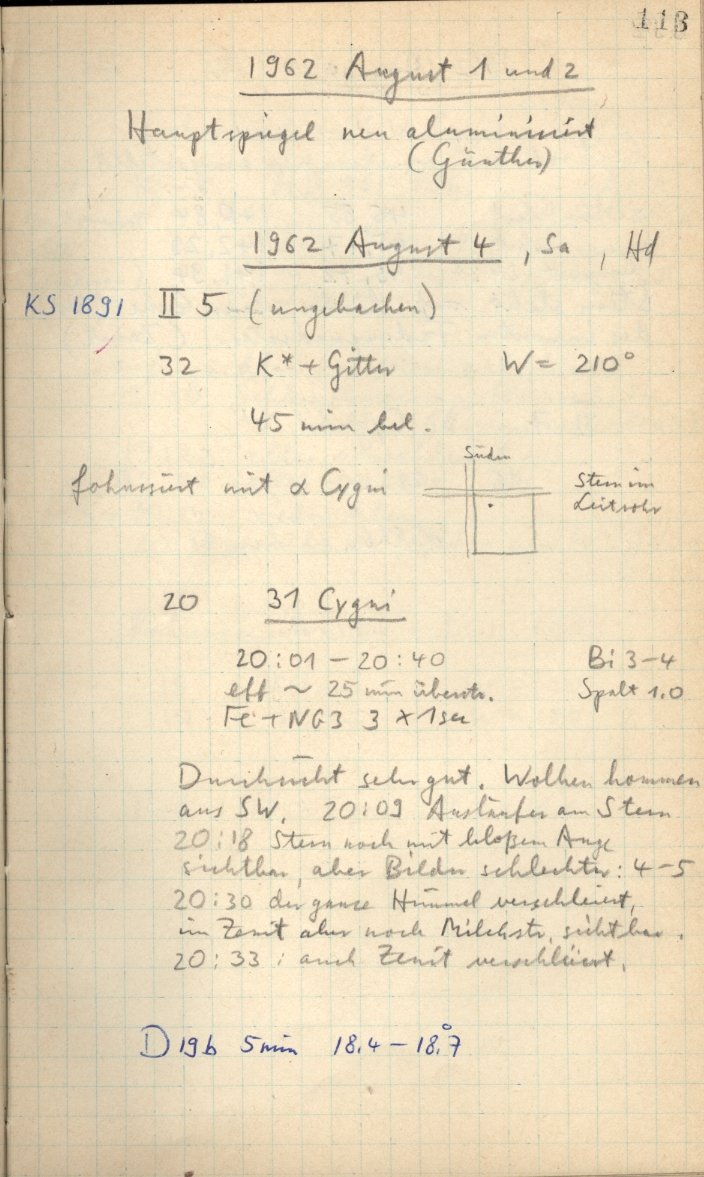 113
1962 August 1 und 2
Hauptspiegel neu aluminisiert
(Günther)
1962 August 4 , Sa , Hd
KS 1891 II 5 (ungebacken)
32 K* + Gitter W = 210°
45 min bel.
fokussiert mit α Cygni
Süden
Stern im
Leitrohr
20 31 Cygni
20:01 – 20:40 Bi 3–4
eff ~ 25 min überstr. Spalt 1.0
Fe + NG3 3 × 1 sec
Durchsicht sehr gut. Wolken kommen
aus SW. 20:09 Ausläufer am Stern
20:18 Stern noch mit bloßem Auge
sichtbar, aber Bilder schlechter: 4–5
20:30 der ganze Himmel verschleiert,
im Zenit aber noch Milchstr. sichtbar.
20:33 : auch Zenit verschleiert.
D 19b 5 min 18.4 – 18.°7